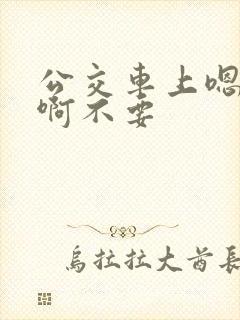 公交車上嗯
啊不要
烏拉拉大酋長